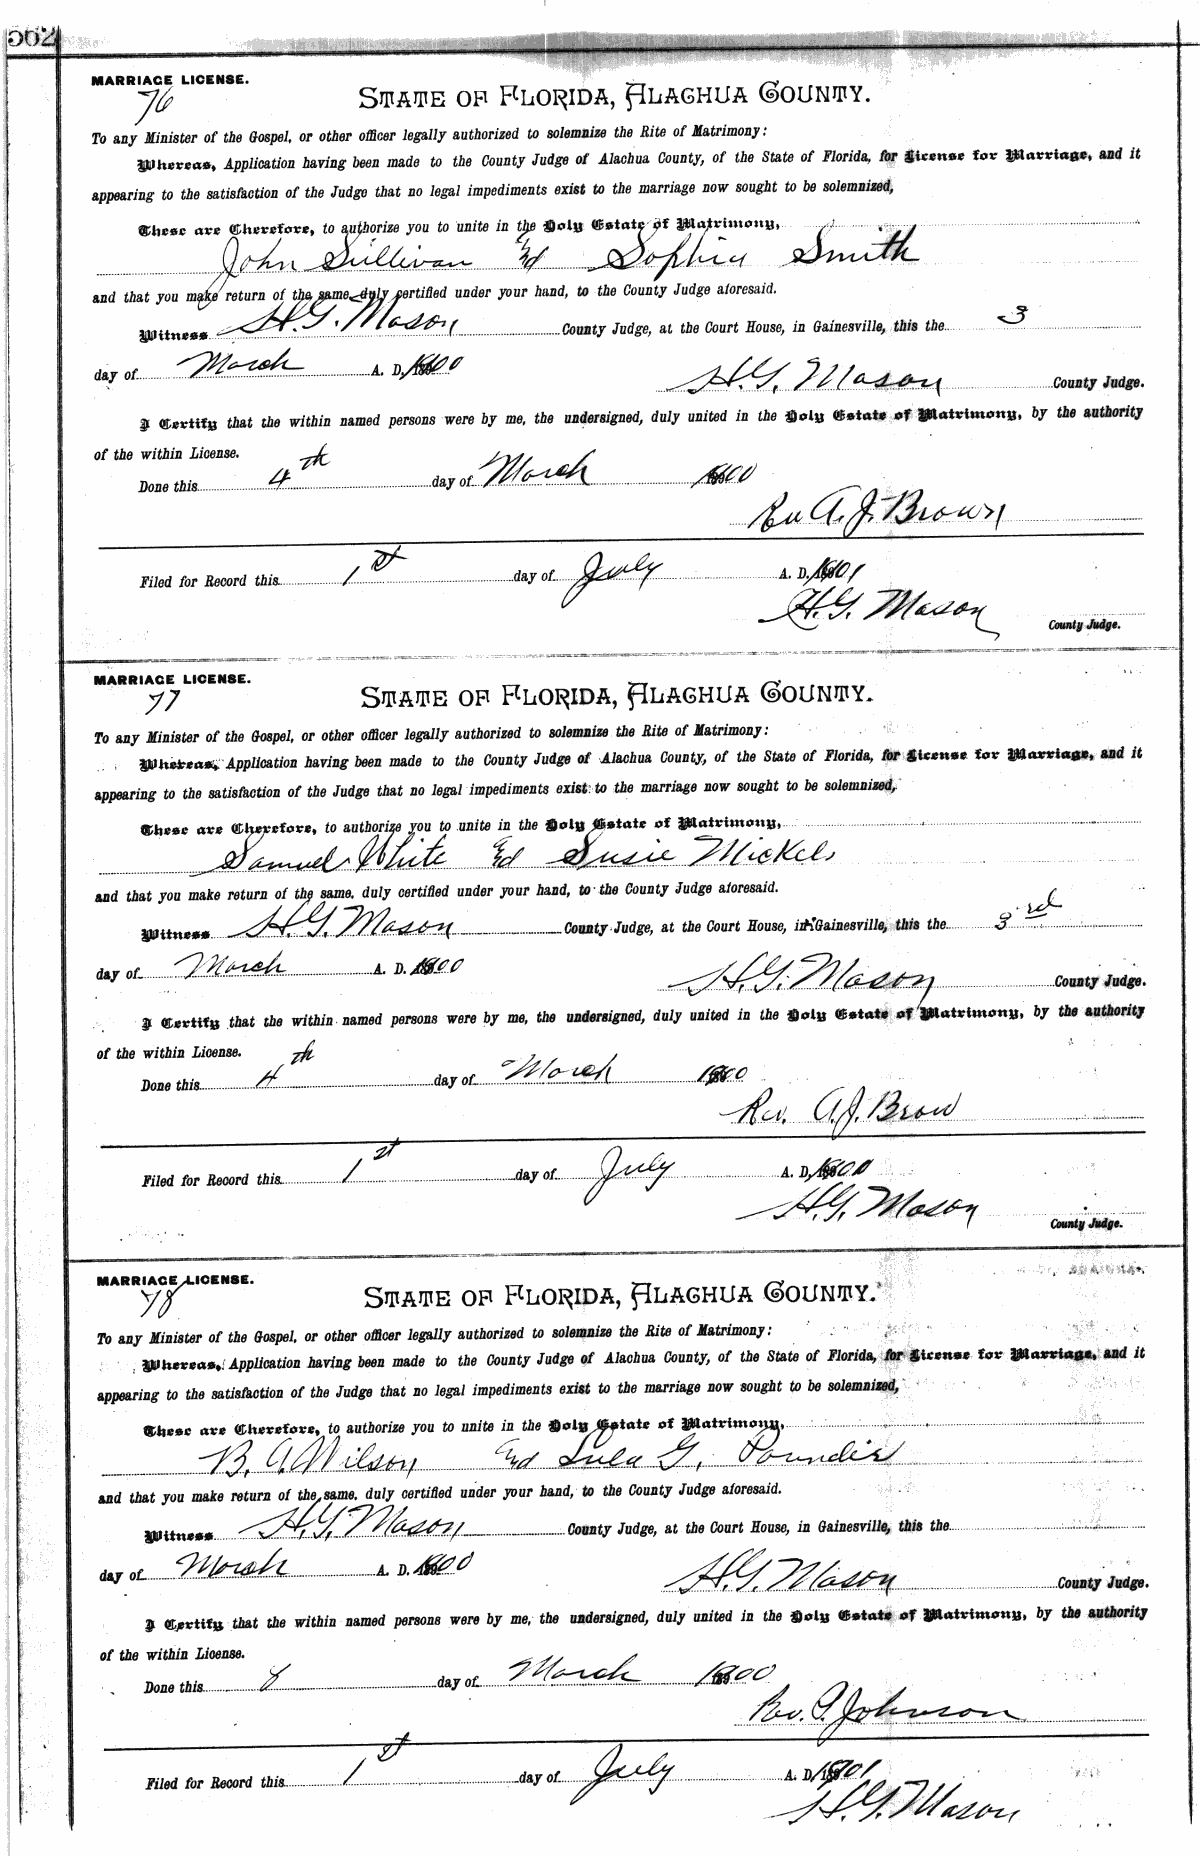 562
MARRIAGE LICENSE.
76
STATE OF FLORIDA, ALACHUA COUNTY.
To any Minister of the Gospel, or other officer legally authorized to solemnize the Rite of Matrimony:
Whereas, Application having been made to the County Judge of Alachua County, of the State of Florida, for License for Marriage, and it
appearing to the satisfaction of the Judge that no legal impediments exist to the marriage now sought to be solemnized,
These are Therefore, to authorize you to unite in the Holy Estate of Matrimony,
John Sullivan End Sophia Smith
and that you make return of the same, duly certified under your hand, to the County Judge aforesaid.
Witness H.G. Mason County Judge, at the Court House, in Gainesville, this the 3
day of March A. D. 1900
H.G. Mason County Judge.
I Certify that the within named persons were by me, the undersigned, duly united in the Holy Estate of Matrimony, by the authority
of the within License.
Done this 4th day of March 1900
Rev A. J. Brown
Filed for Record this 1st day of July A. D. 1901
H.G. Mason
County Judge.
MARRIAGE LICENSE.
77
STATE OF FLORIDA, ALACHUA COUNTY.
To any Minister of the Gospel, or other officer legally authorized to solemnize the Rite of Matrimony:
Whereas, Application having been made to the County Judge of Alachua County, of the State of Florida, for License for Marriage, and it
appearing to the satisfaction of the Judge that no legal impediments exist to the marriage now sought to be solemnized,
These are Therefore, to authorize you to unite in the Holy Estate of Matrimony,
Samuel White End Susie Mickels
and that you make return of the same, duly certified under your hand, to the County Judge aforesaid.
Witness H.G. Mason County Judge, at the Court House, in Gainesville, this the 3rd
day of March A. D. 1900
H.G. Mason County Judge.
I Certify that the within named persons were by me, the undersigned, duly united in the Holy Estate of Matrimony, by the authority
of the within License.
Done this 4th day of March 1900
Rev. A. J. Brow
Filed for Record this 1st day of July A. D.
H.G. Mason
County Judge.
MARRIAGE LICENSE.
78
STATE OF FLORIDA, ALACHUA COUNTY.
To any Minister of the Gospel, or other officer legally authorized to solemnize the Rite of Matrimony:
Whereas, Application having been made to the County Judge of Alachua County, of the State of Florida, for License for Marriage, and it
appearing to the satisfaction of the Judge that no legal impediments exist to the marriage now sought to be solemnized,
These are Therefore, to authorize you to unite in the Holy Estate of Matrimony,
B. A. Wilson End Lula G. Pounder
and that you make return of the same, duly certified under your hand, to the County Judge aforesaid.
Witness H.G. Mason County Judge, at the Court House, in Gainesville, this the
day of March A. D. 1900
H.G. Mason County Judge.
I Certify that the within named persons were by me, the undersigned, duly united in the Holy Estate of Matrimony, by the authority
of the within License.
Done this 8 day of March 1900
Rev. Johnson
Filed for Record this 1st day of July A. D. 1901
H.G. Mason